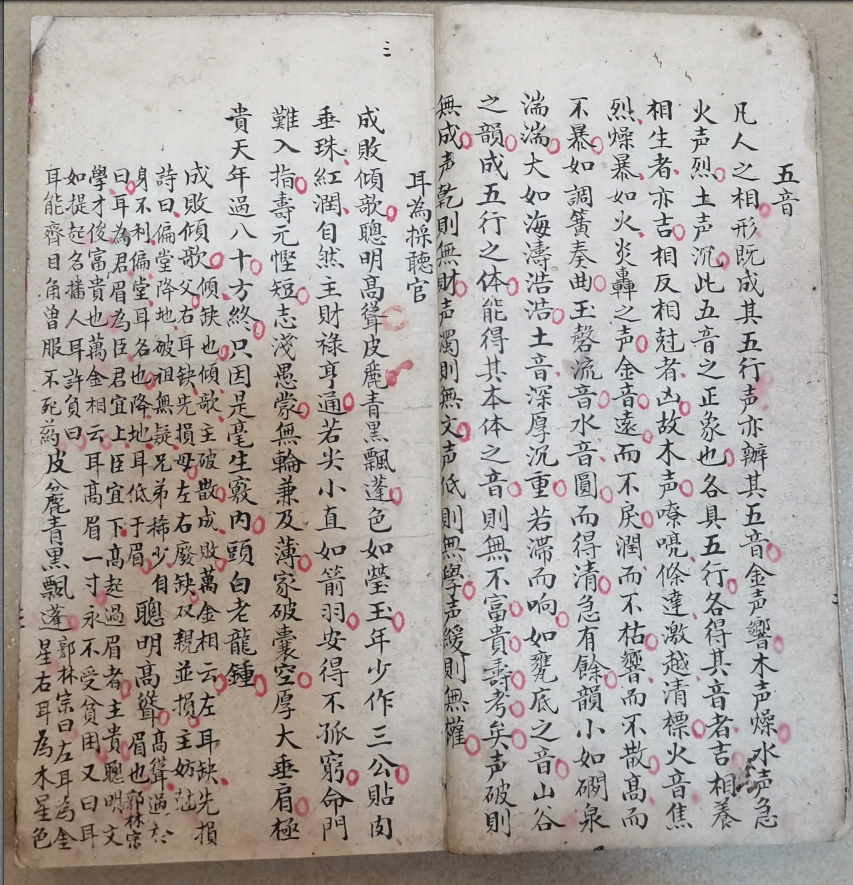 五音
凡人之相形既成其五行声亦辦其五音金声響木声燥水声急
火声烈土声沉此五音之正象也各具五行各得其音者吉相養
相生者亦吉相反相尅者凶故木声嘹喨條達激越清標火音焦
烈燥暴如火炎轟之声金音遠而不戾潤而不枯響而不散高而
不暴如調簧奏曲玉磬流音水音圓而得清急有餘韻小如澗泉
湍湍大如海濤浩浩土音深厚沉重若滯而响如甕底之音山谷
之韻成五行之体能得其本体之音則無不富貴壽考矣声破則
無成声乾則無財声濁則無文声低則無學声緩則無權
三
耳為採聽官
成敗傾歌聰明髙聳皮麁青黑飄蓬色如瑩玉年少作三公貼肉
垂珠紅潤自然主財祿亨通若尖小直如箭羽安得不孤窮命門
難入指壽元慳短志淺愚蒙無輪兼及薄家破囊空厚大垂肩極
貴天年過八十方終只因是毫生竅内頭白老龍鍾
成敗傾歌父右耳缺先損母左右廢缺双親並損主妨
傾缺也傾歌主破散成敗萬金相云左耳缺先損
詩曰偏堂降地破祖無疑兄弟稀少自
身不利偏堂耳名也降地耳低于眉聰明髙聳眉也郭林宗
曰耳為君眉為臣君宜上臣宜下高起過眉者主貴聰明文
學才俊富貴也萬金相云耳髙眉一寸永不受貧困又曰耳
如提起名播人耳許負曰
耳能齊目角曾服不死药皮麄青黑飄蓬郭林宗曰左耳為金
星右耳為木星色